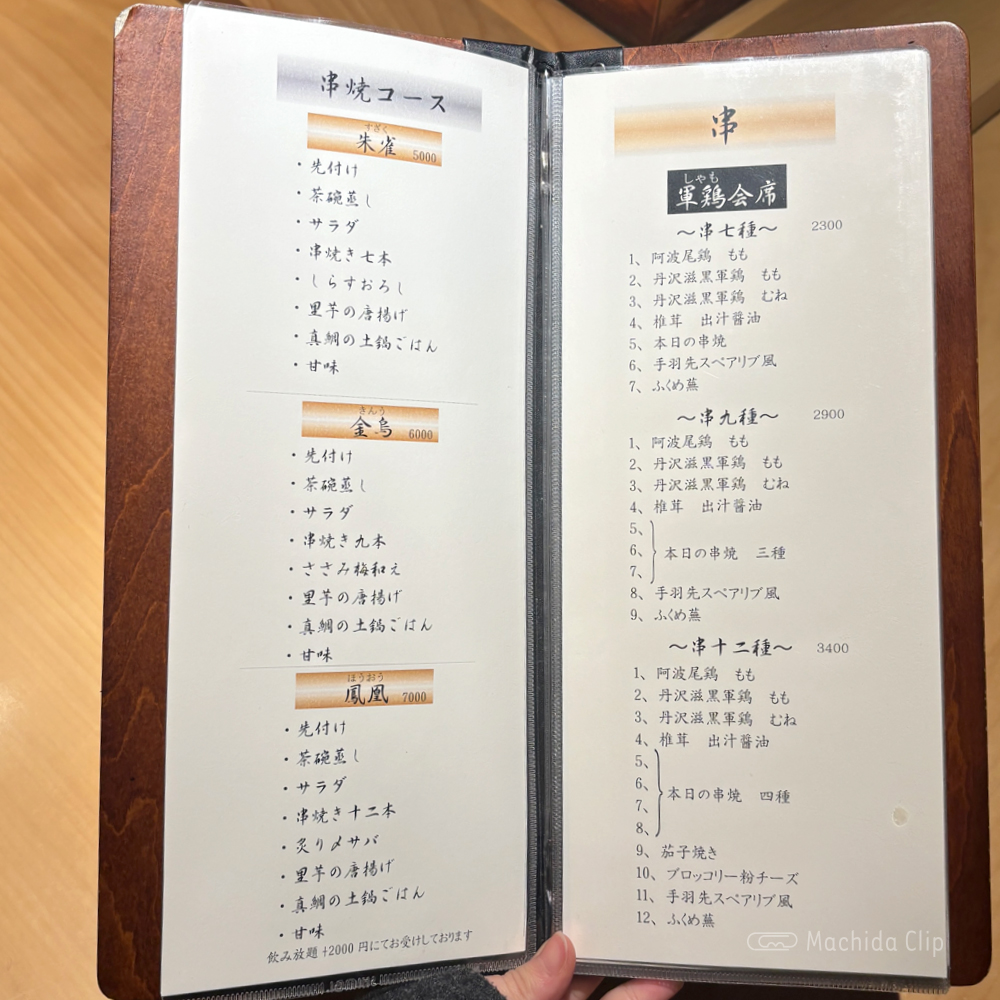 串焼コース
すざく
朱雀 5000
・先付け
・茶碗蒸し
・サラダ
・串焼き七本
・しらすおろし
・里芋の唐揚げ
・真鯛の土鍋ごはん
・甘味
きんう
金烏 6000
・先付け
・茶碗蒸し
・サラダ
・串焼き九本
・ささみ梅和え
・里芋の唐揚げ
・真鯛の土鍋ごはん
・甘味
ほうおう
鳳凰 7000
・先付け
・茶碗蒸し
・サラダ
・串焼き十二本
・炙り〆サバ
・里芋の唐揚げ
・真鯛の土鍋ごはん
・甘味
飲み放題 +2000 円にてお受けしております
串
しゃも
軍鶏会席
～串七種～ 2300
1、阿波尾鶏 もも
2、丹沢滋黒軍鶏 もも
3、丹沢滋黒軍鶏 むね
4、椎茸 出汁醤油
5、本日の串焼
6、手羽先スペアリブ風
7、ふくめ蕪
～串九種～ 2900
1、阿波尾鶏 もも
2、丹沢滋黒軍鶏 もも
3、丹沢滋黒軍鶏 むね
4、椎茸 出汁醤油
5、
6、本日の串焼 三種
7、
8、手羽先スペアリブ風
9、ふくめ蕪
～串十二種～ 3400
1、阿波尾鶏 もも
2、丹沢滋黒軍鶏 もも
3、丹沢滋黒軍鶏 むね
4、椎茸 出汁醤油
5、
6、
7、本日の串焼 四種
8、
9、茄子焼き
10、ブロッコリー粉チーズ
11、手羽先スペアリブ風
12、ふくめ蕪
Machida Clip